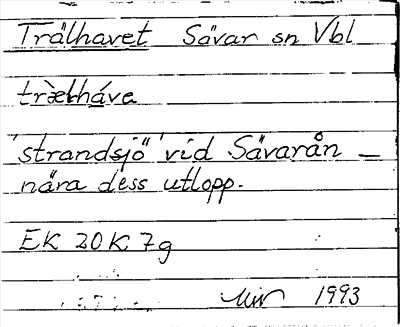 Trälhavet Sävar sn Vbl
trælháve
'strandsjö' vid Sävarån –
nära dess utlopp.
EK 20K 7g
1993